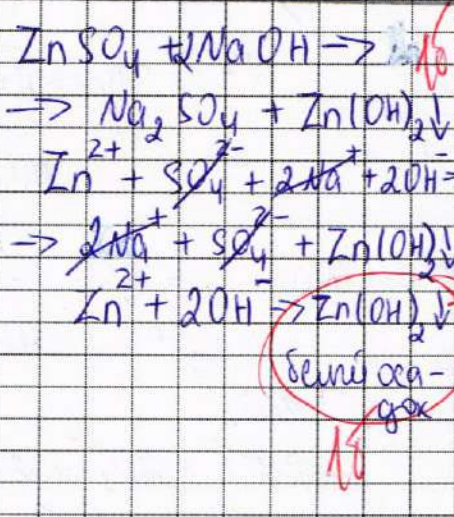 ZnSO₄ + 2NaOH →
→ Na₂SO₄ + Zn(OH)₂↓
Zn²⁺ + SO₄²⁻ + 2Na⁺ + 2OH⁻ =
→ 2Na⁺ + SO₄²⁻ + Zn(OH)₂↓
Zn²⁺ + 2OH⁻ → Zn(OH)₂↓
белый оса-
док
1б